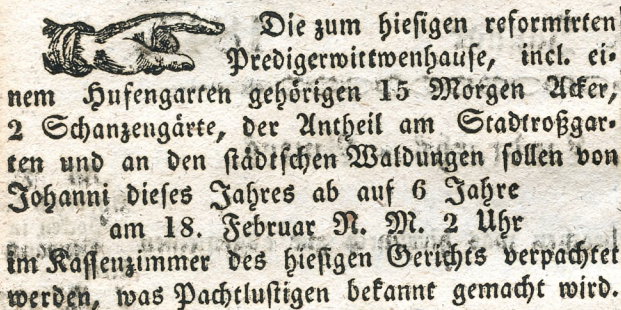 Die zum hiesigen reformirten
Predigerwittwenhause, incl. ei-
nem Hufengarten gehörigen 15 Morgen Acker,
2 Schanzengärte, der Antheil am Stadtroßgar-
ten und an den städtschen Waldungen sollen von
Johanni dieses Jahres ab auf 6 Jahre
am 18. Februar N. M. 2 Uhr
im Kassenzimmer des hiesigen Gerichts verpachtet
werden, was Pachtlustigen bekannt gemacht wird.